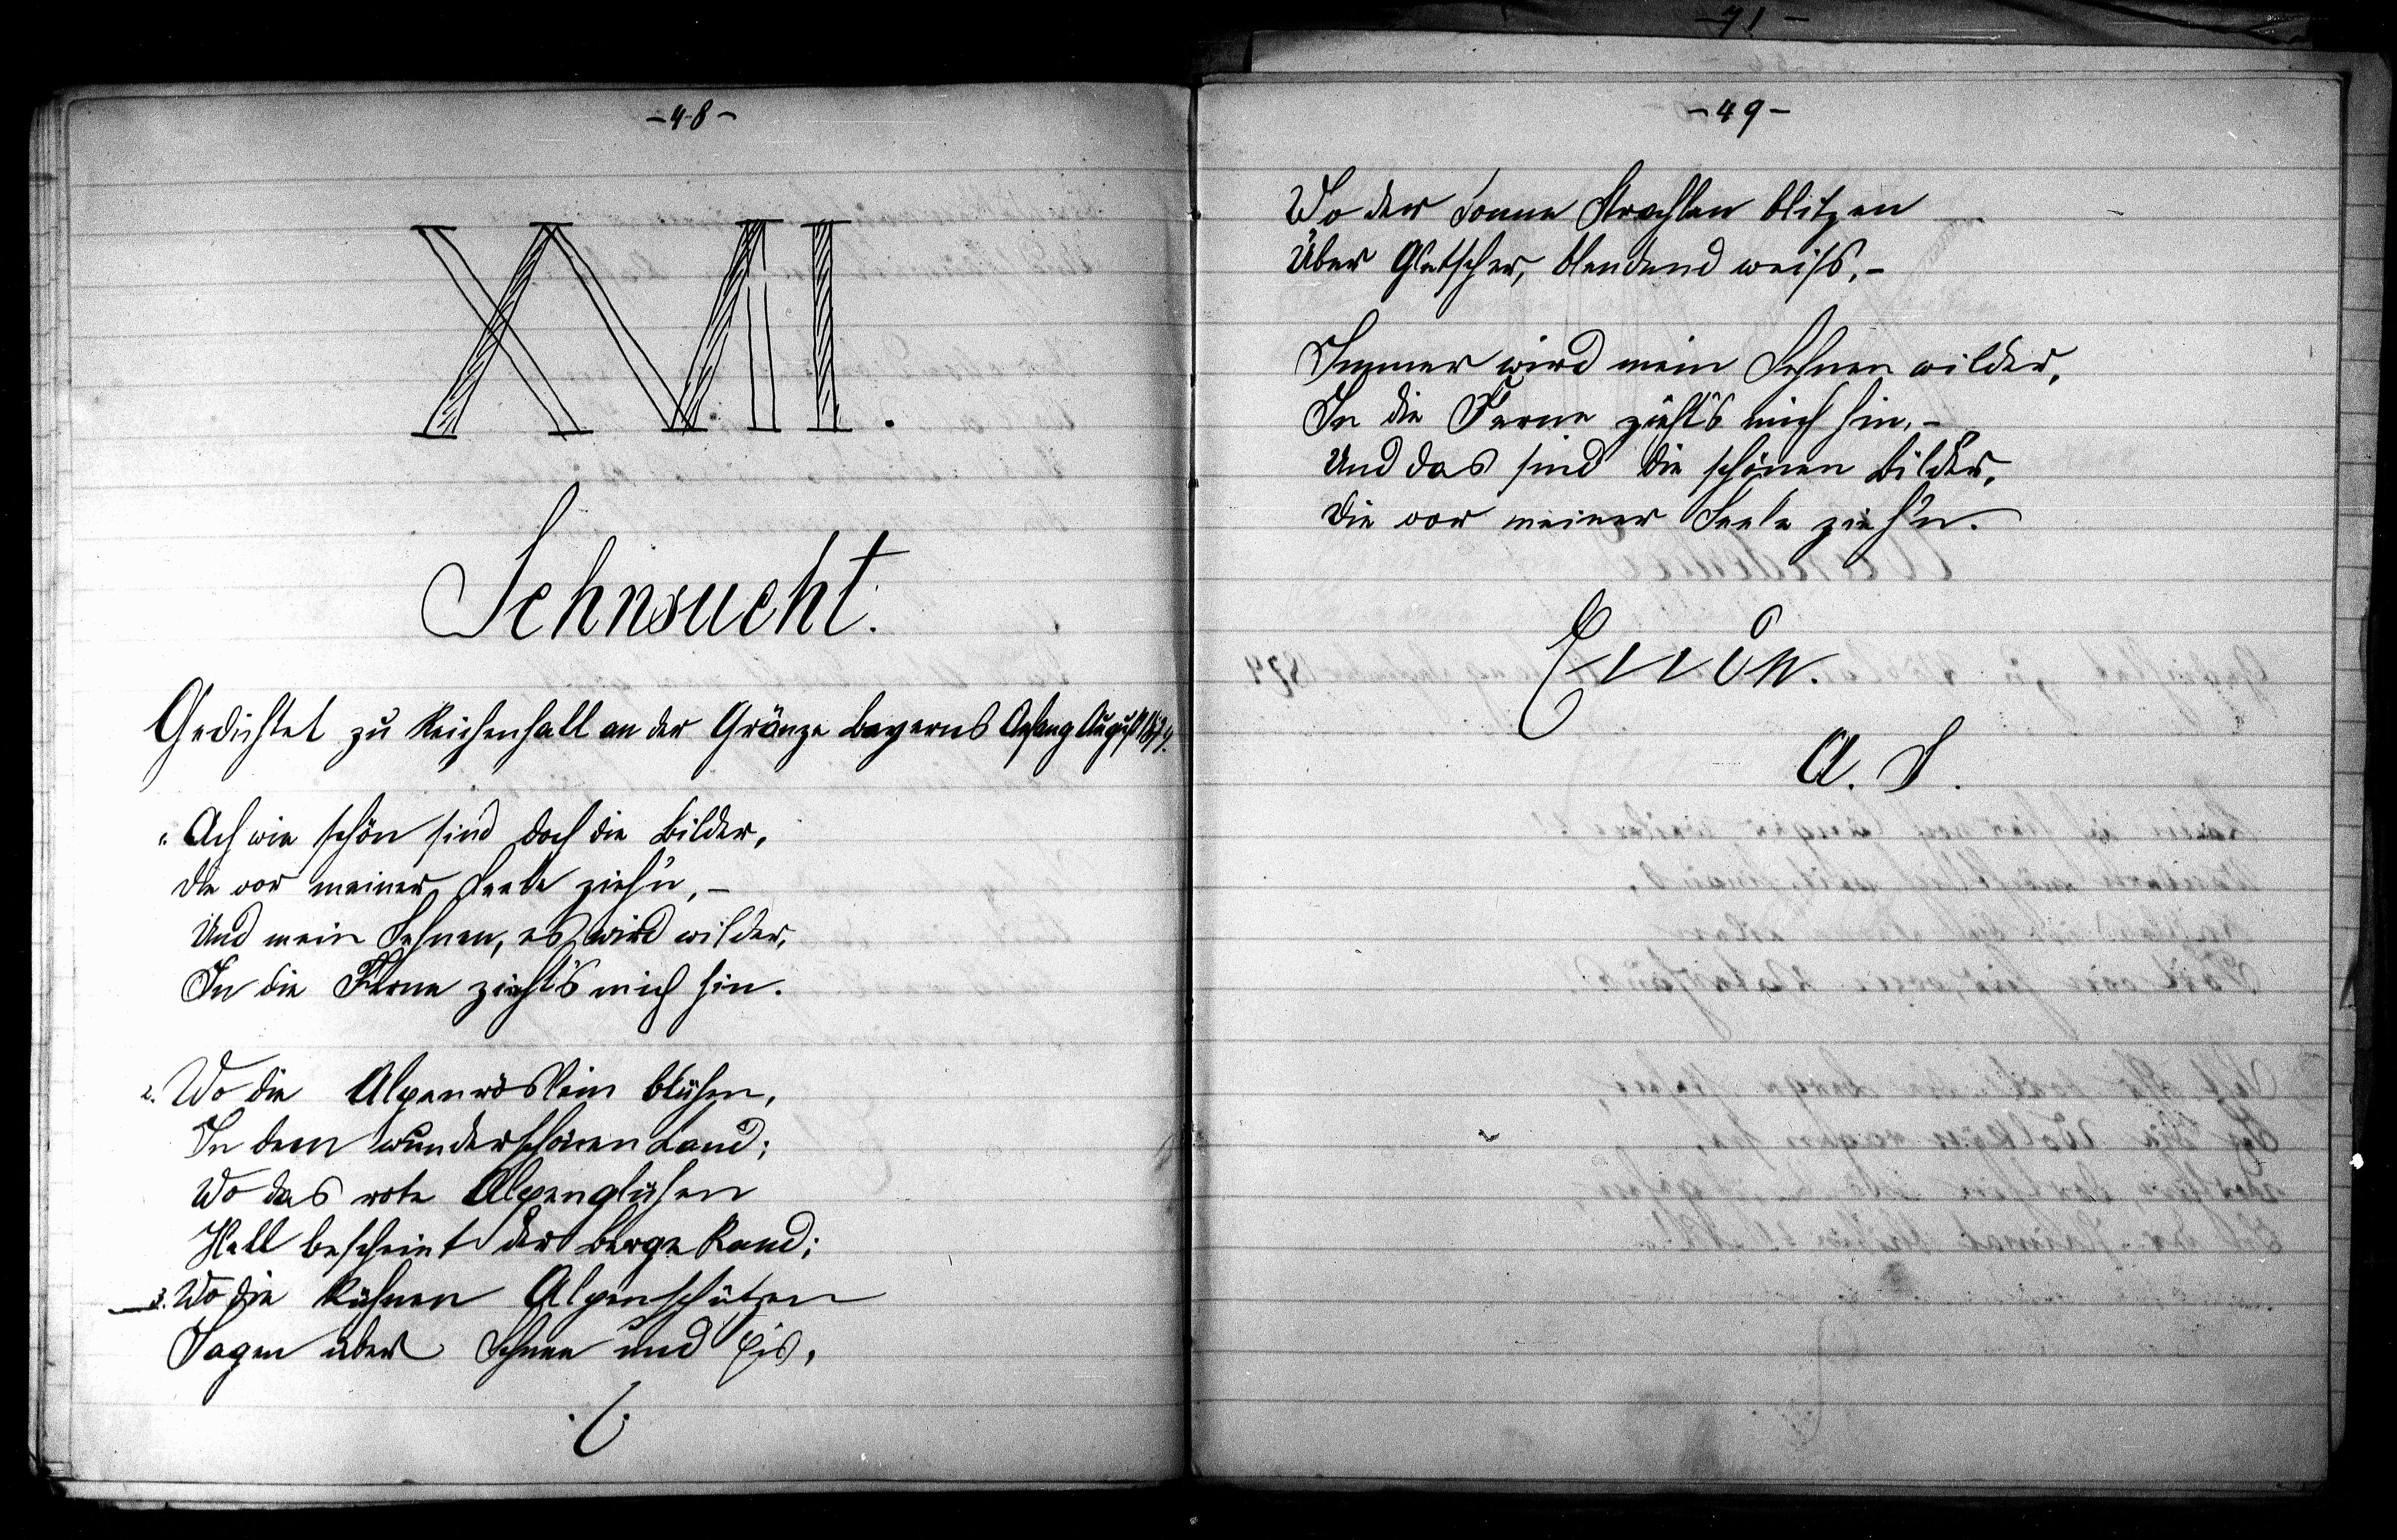 -48-
XVII.
Sehnsucht.
Gedichtet zu Reichenhall an der Gränze Bayerns Anfang August 1874.
1. Ach wie schön sind doch die Bilder,
Die vor meiner Seele zieh'n, -
Und mein Sehnen, es wird wilder,
In die Ferne zieht's mich hin.
2. Wo die Alpenröslein blühen,
In dem wunderschönen Land;
Wo das rote Alpenglühen
Hell bescheint der Berge Rand;
3. Wo die kühnen Alpenschützen
Jagen über Schnee und Eis,
-49-
Wo der Sonne Strahlen blitzen
Über Gletscher, blendend weiss, -
Immer wird mein Sehnen wilder,
In die Ferne zieht's mich hin, -
Und das sind die schönen Bilder,
Die vor meiner Seele zieh'n.
A. S.